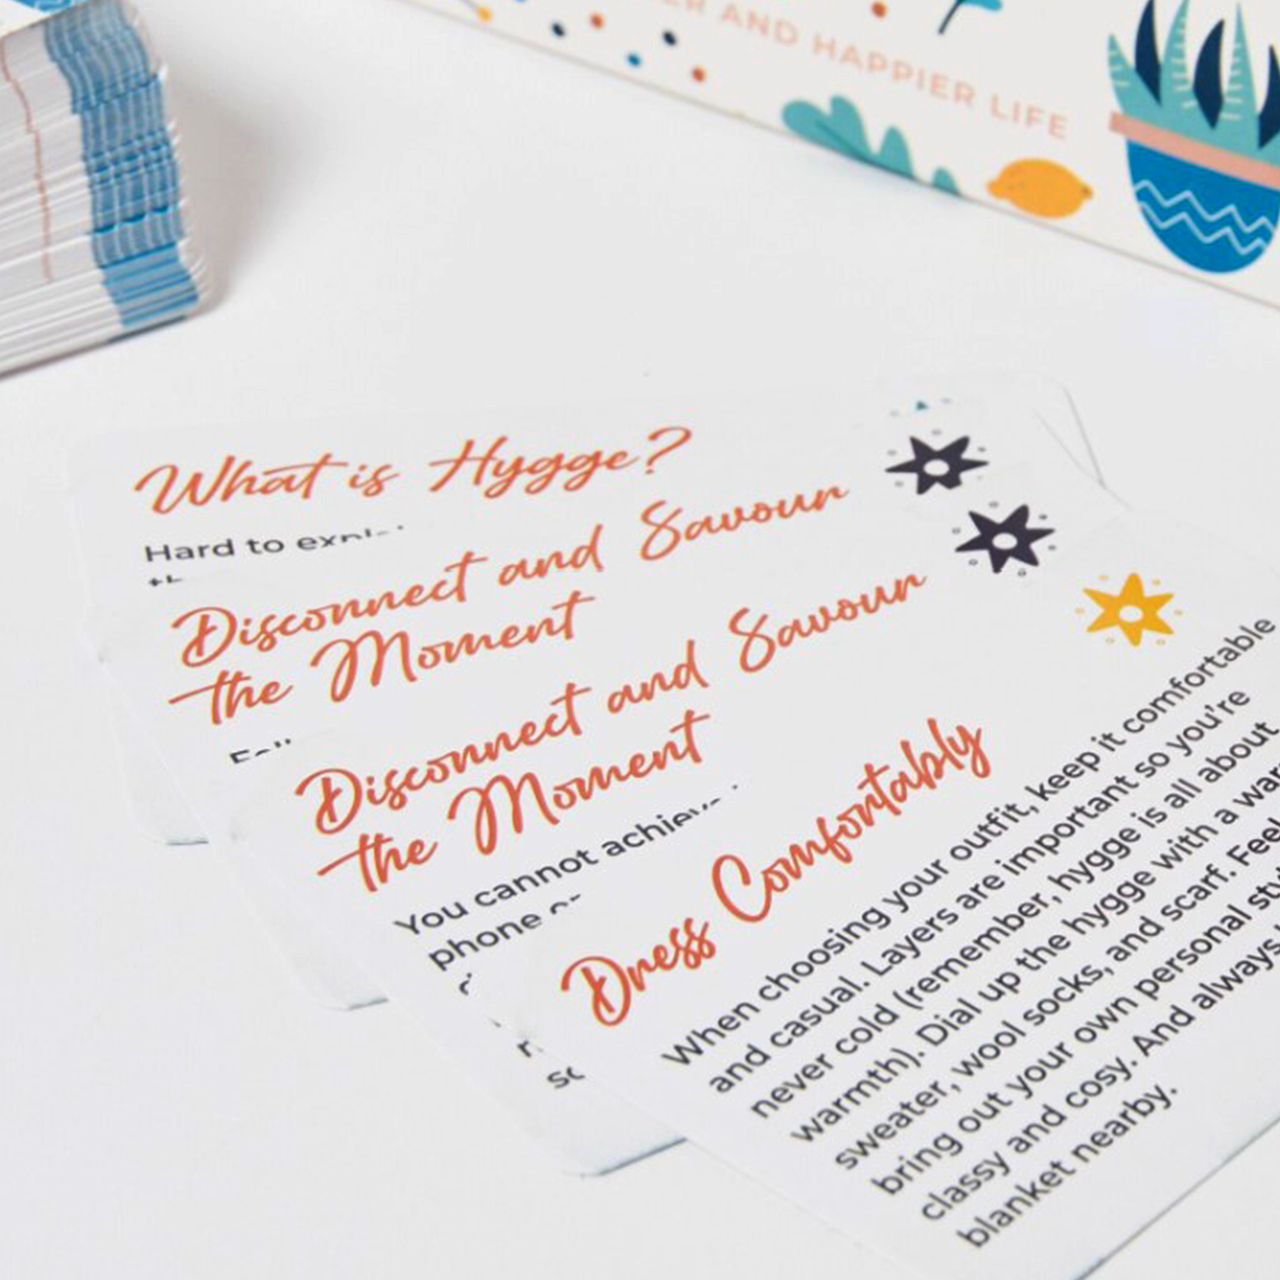 AND HAPPIER LIFE
What is Hygge?
Hard to
Disconnect and Savour
the Moment
Disconnect and Savour
the Moment
You cannot
phone
Dress Comfortably
When choosing your outfit, keep it comfortable
and casual. Layers are important so you're
never cold (remember, hygge is all about
warmth). Dial up the hygge with a
sweater, wool socks, and scarf. Feel
bring out your own personal
classy and cosy. And always
blanket nearby.